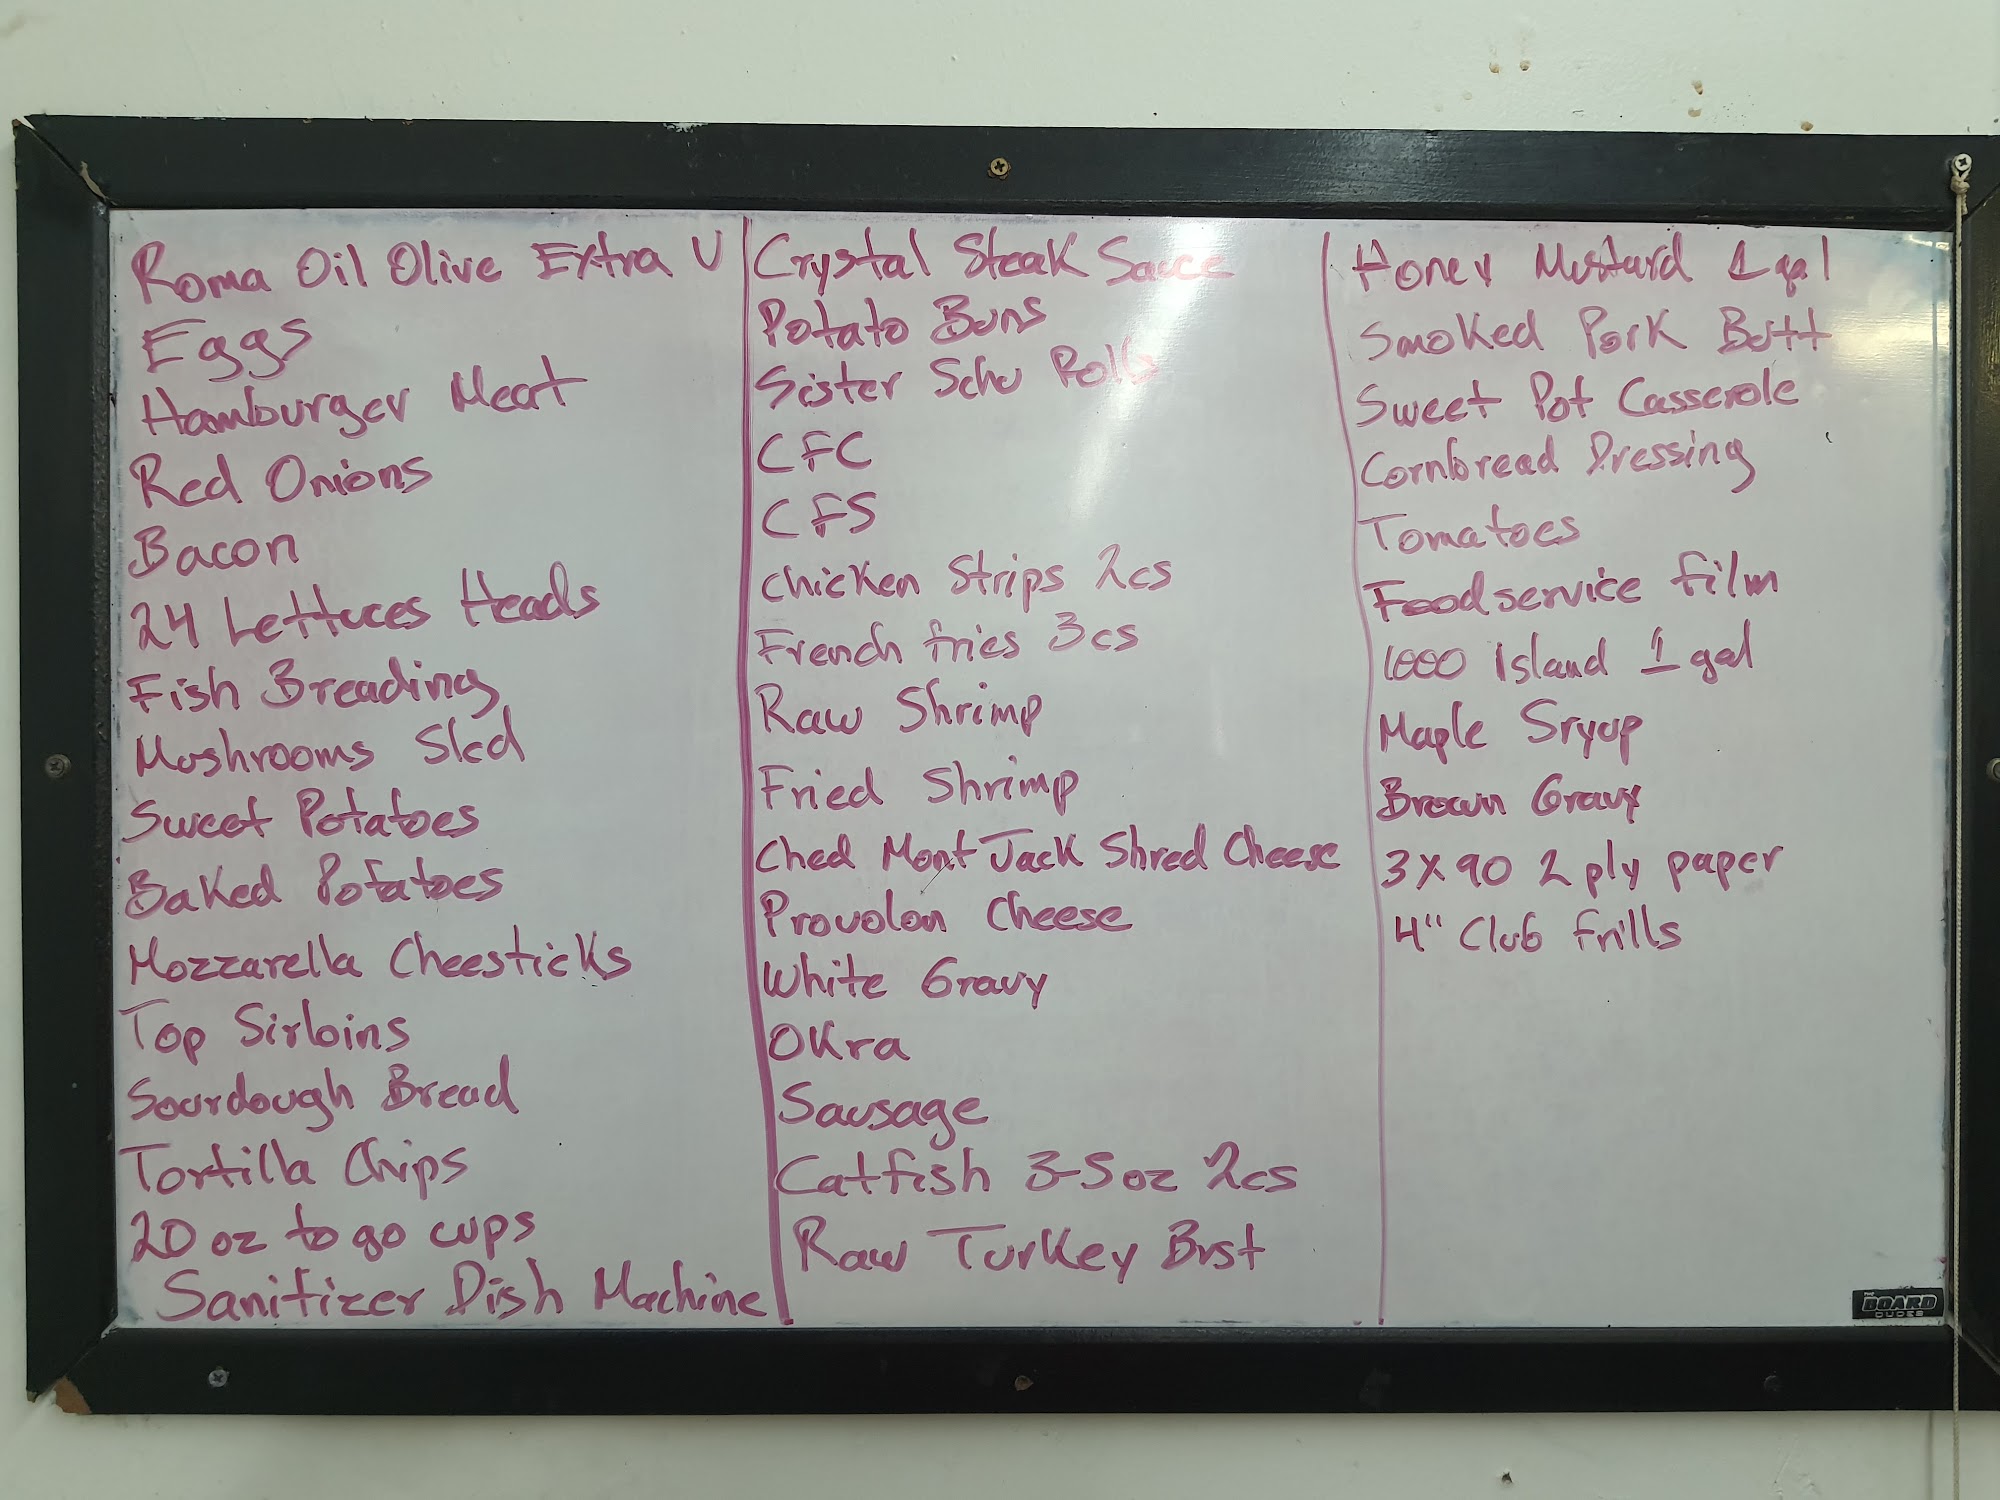 Roma Oil Olive Extra V
Eggs
Hamburger Meat
Red Onions
Bacon
24 Lettuces Heads
Fish Breading
Mushrooms Slcd
Sweet Potatoes
Baked Potatoes
Mozzarella Cheesticks
Top Sirloins
Sourdough Bread
Tortilla Chips
20 oz to go cups
Sanitizer Dish Machine
Crystal Steak Sauce
Potato Buns
Sister Schu Rolls
CFC
CFS
Chicken Strips 2cs
French fries 3cs
Raw Shrimp
Fried Shrimp
Ched Mont Jack Shred Cheese
Provolon Cheese
White Gravy
Okra
Sausage
Catfish 3-5 oz 2cs
Raw Turkey Brst
Honey Mustard 1 gal
Smoked Pork Butt
Sweet Pot Casserole
Cornbread Dressing
Tomatoes
Foodservice film
1000 Island 1 gal
Maple Sryup
Brown Gravy
3x90 2 ply paper
4" Club frills
THE BOARD DUDES